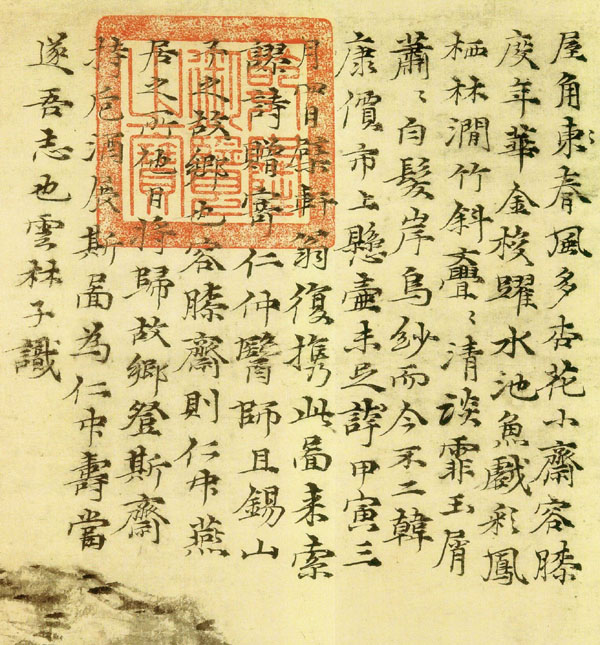 屋角東春風多杏花小齋容膝
度年華金梭躍水池魚戲彩鳳
栖林澗竹斜亹〻清談霏玉屑
蕭〻白髮岸烏紗而今不二韓
康價市上懸壺未足誇甲寅三
月四日檗軒翁復携此啚来索
謬詩贈寄仁仲醫師且錫山
予之故鄉也容膝齋則仁中燕
居之所他日將歸故鄉登斯齋
持卮酒展斯啚為仁中壽當
遂吾志也雲林子識